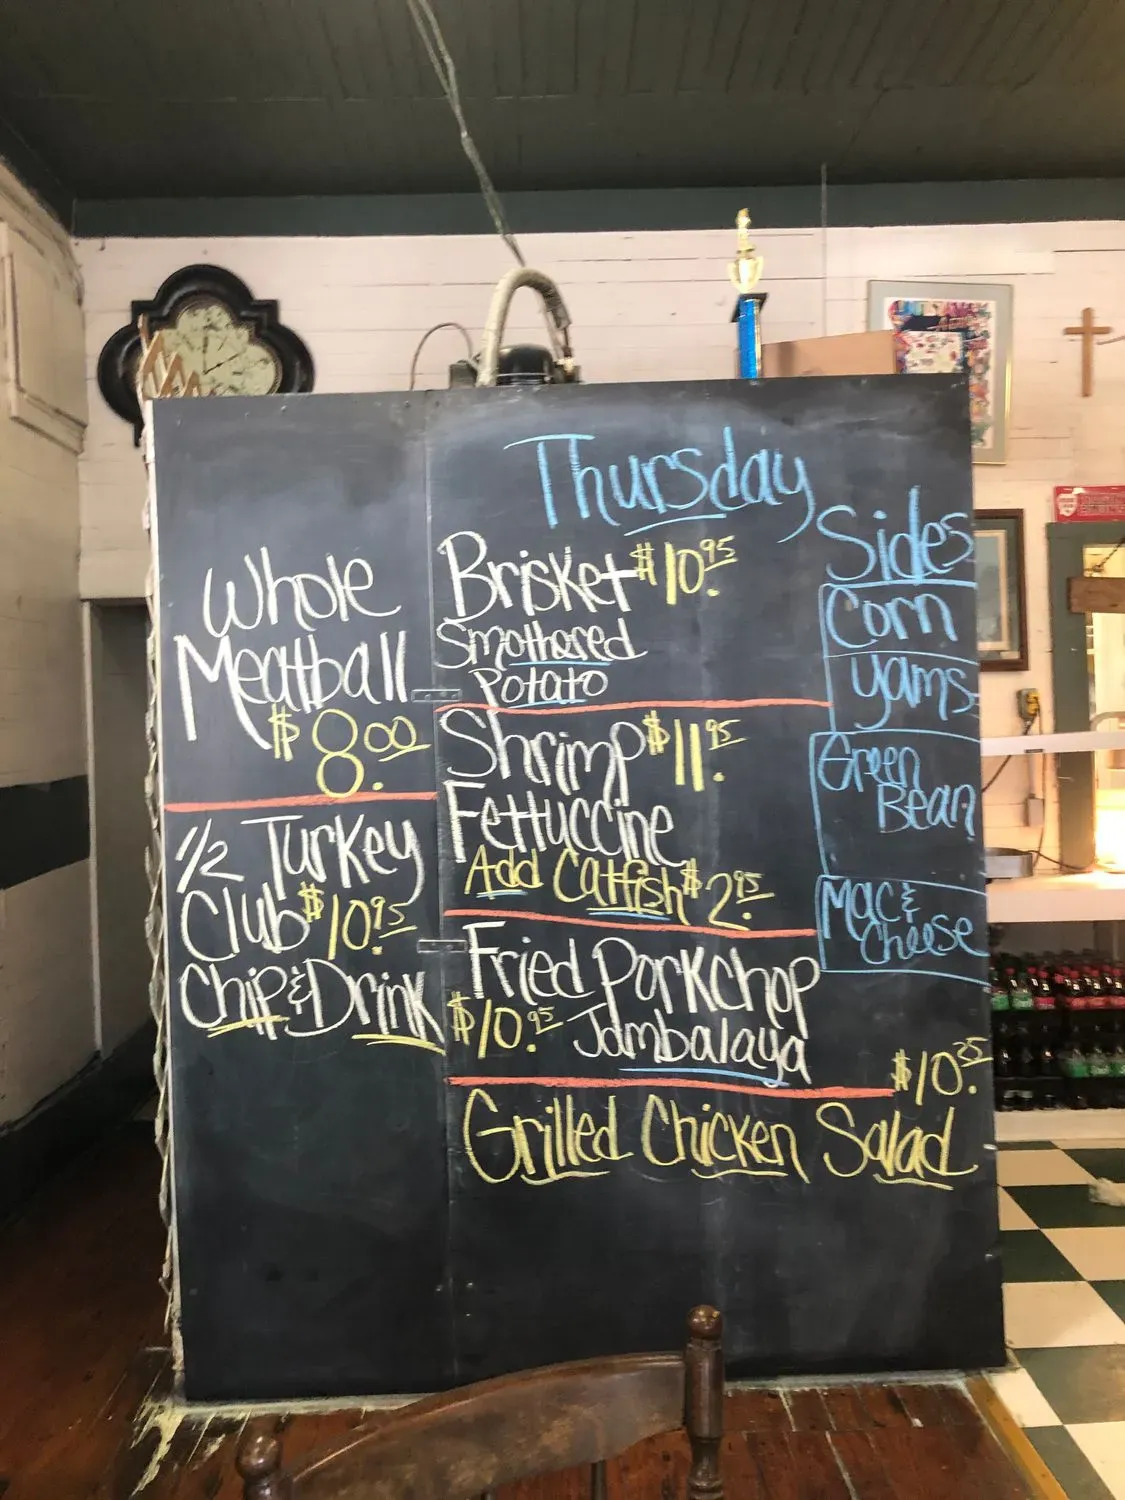 Thursday
Whole
Meatball
$8.00
1/2 Turkey
Club $10.95
Chip & Drink
Brisket $10.95
Smothered
Potato
Shrimp $11.95
Fettuccine
Add Catfish $2.95
Fried Porkchop
$10.95 Jambalaya
$10.25
Grilled Chicken Salad
Sides
Corn
Yams
Green
Bean
Mac &
Cheese